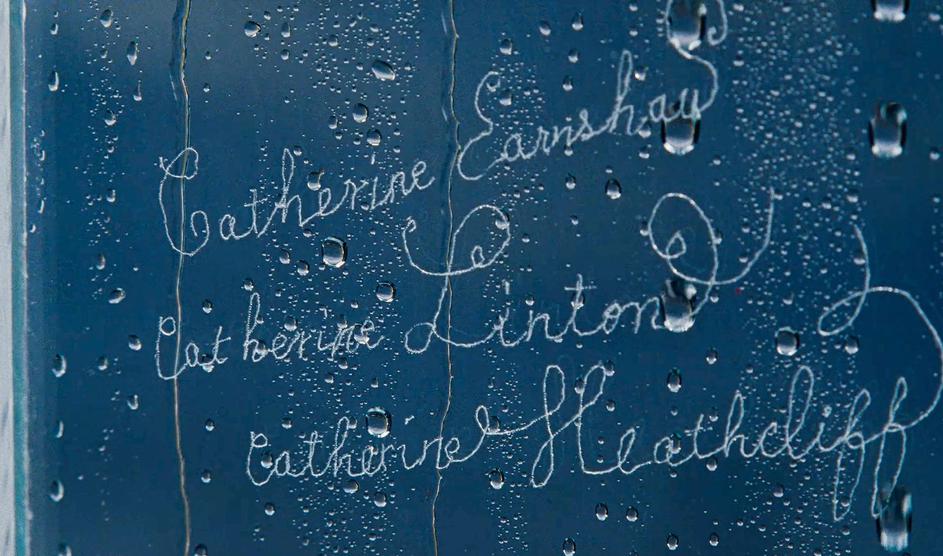 Catherine Earnshaw
Catherine Linton
Catherine Heathcliff